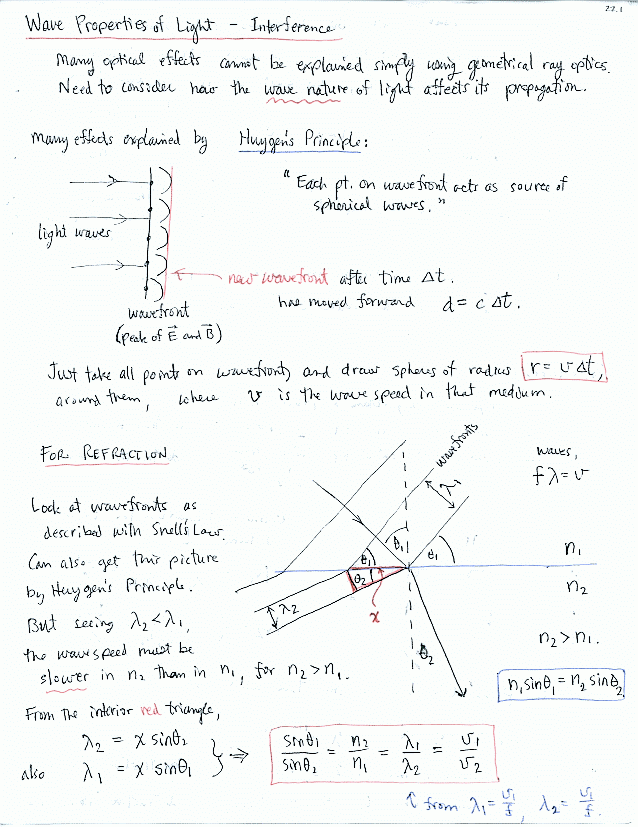 27.1
Wave Properties of Light - Interference
Many optical effects cannot be explained simply using geometrical ray optics.
Need to consider how the wave nature of light affects its propagation.
Many effects explained by Huygen's Principle:
"Each pt. on wavefront acts as source of
spherical waves."
light waves
new wavefront after time Δt.
has moved forward d = c Δt.
wavefront
(peak of E⃗ and B⃗)
Just take all points on wavefront, and draw spheres of radius r = v Δt,
around them, where v is the wave speed in that medium.
FOR REFRACTION
wavefronts
waves,
fλ = v
λ₁
Look at wavefronts as
described with Snell's Law.
Can also get this picture
by Huygen's Principle.
But seeing λ₂ < λ₁,
the wavespeed must be
slower in n₂ than in n₁, for n₂ > n₁.
θ₁
θ₁
θ₁
n₁
θ₂
n₂
λ₂
x
θ₂
n₂ > n₁.
n₁ sinθ₁ = n₂ sinθ₂
From the interior red triangle,
λ₂ = x sinθ₂
also λ₁ = x sinθ₁ } ⇒ sinθ₁/sinθ₂ = n₂/n₁ = λ₁/λ₂ = v₁/v₂
↑ from λ₁ = v₁/f, λ₂ = v₁/f.